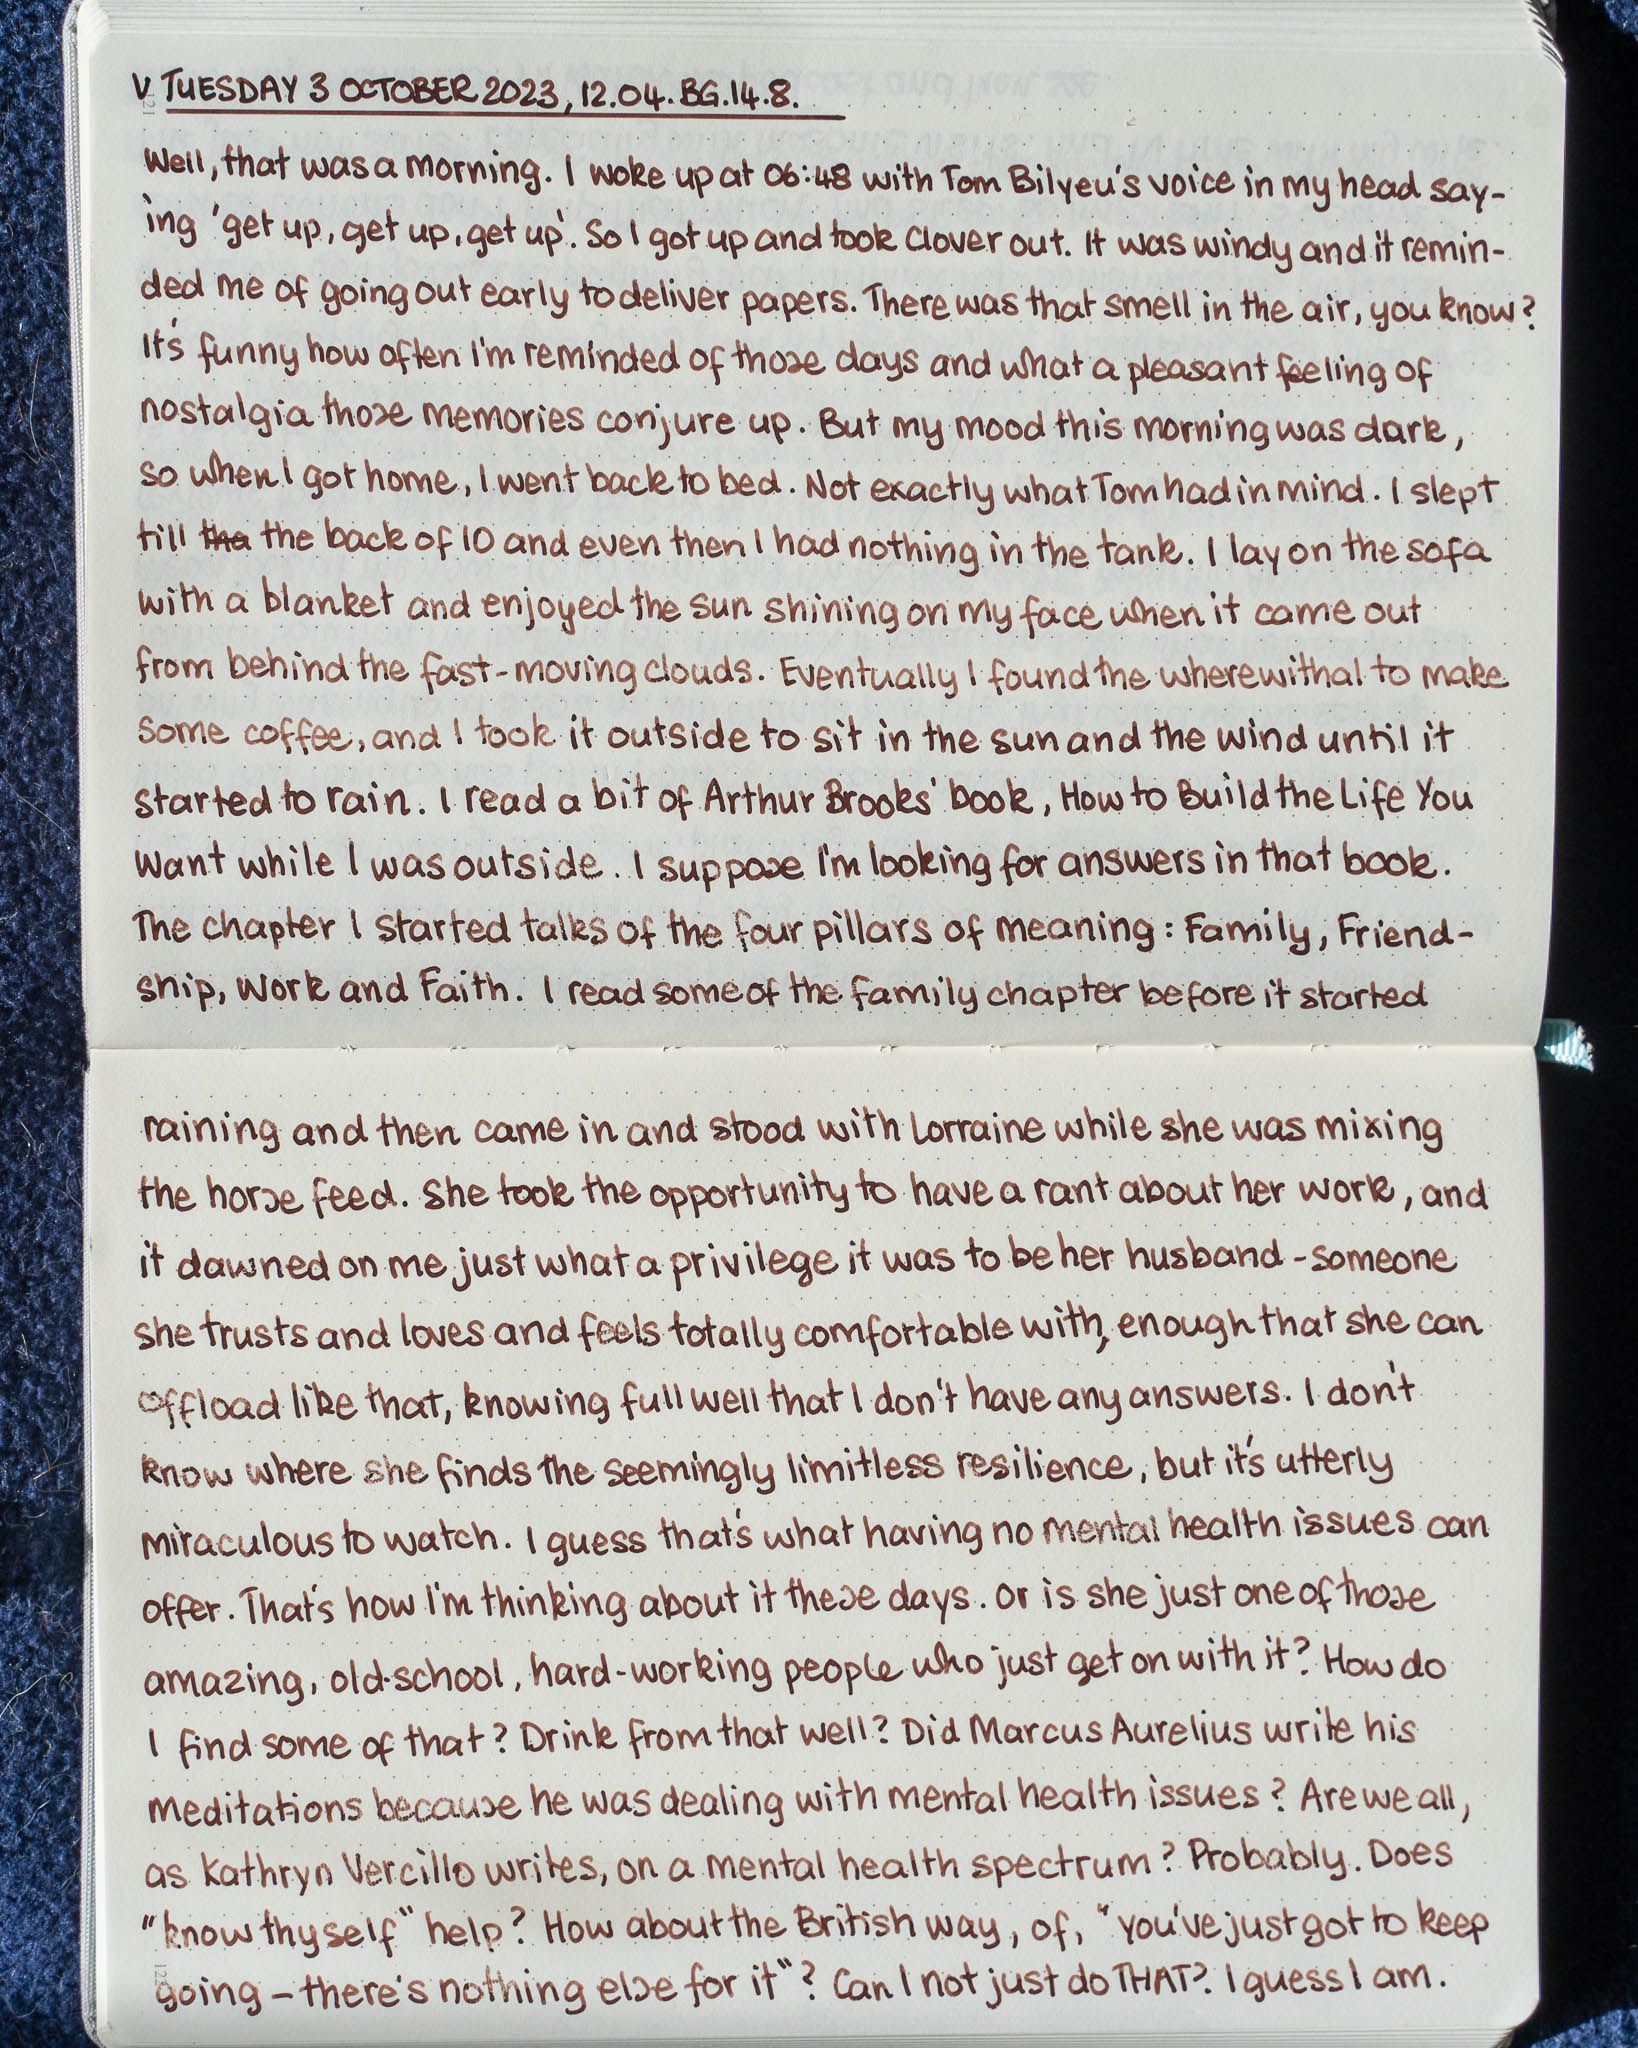 V TUESDAY 3 OCTOBER 2023, 12.04. BG.14.8.
Well, that was a morning. I woke up at 06:48 with Tom Bilyeu's voice in my head say-
ing 'get up, get up, get up'. So I got up and took Clover out. It was windy and it remin-
ded me of going out early to deliver papers. There was that smell in the air, you know?
It's funny how often I'm reminded of those days and what a pleasant feeling of
nostalgia those memories conjure up. But my mood this morning was dark,
so when I got home, I went back to bed. Not exactly what Tom had in mind. I slept
till tha the back of 10 and even then I had nothing in the tank. I lay on the sofa
with a blanket and enjoyed the sun shining on my face when it came out
from behind the fast-moving clouds. Eventually I found the wherewithal to make
some coffee, and I took it outside to sit in the sun and the wind until it
started to rain. I read a bit of Arthur Brooks' book, How to Build the Life You
Want while I was outside. I suppose I'm looking for answers in that book.
The chapter I started talks of the four pillars of meaning: Family, Friend-
ship, Work and Faith. I read some of the family chapter before it started
raining and then came in and stood with Lorraine while she was mixing
the horse feed. She took the opportunity to have a rant about her work, and
it dawned on me just what a privilege it was to be her husband - someone
she trusts and loves and feels totally comfortable with, enough that she can
offload like that, knowing full well that I don't have any answers. I don't
know where she finds the seemingly limitless resilience, but it's utterly
miraculous to watch. I guess that's what having no mental health issues can
offer. That's how I'm thinking about it these days. Or is she just one of those
amazing, old-school, hard-working people who just get on with it? How do
I find some of that? Drink from that well? Did Marcus Aurelius write his
meditations because he was dealing with mental health issues? Are we all,
as Kathryn Vercillo writes, on a mental health spectrum? Probably. Does
"know thyself" help? How about the British way, of, "you've just got to keep
going – there's nothing else for it"? Can I not just do THAT? I guess I am.